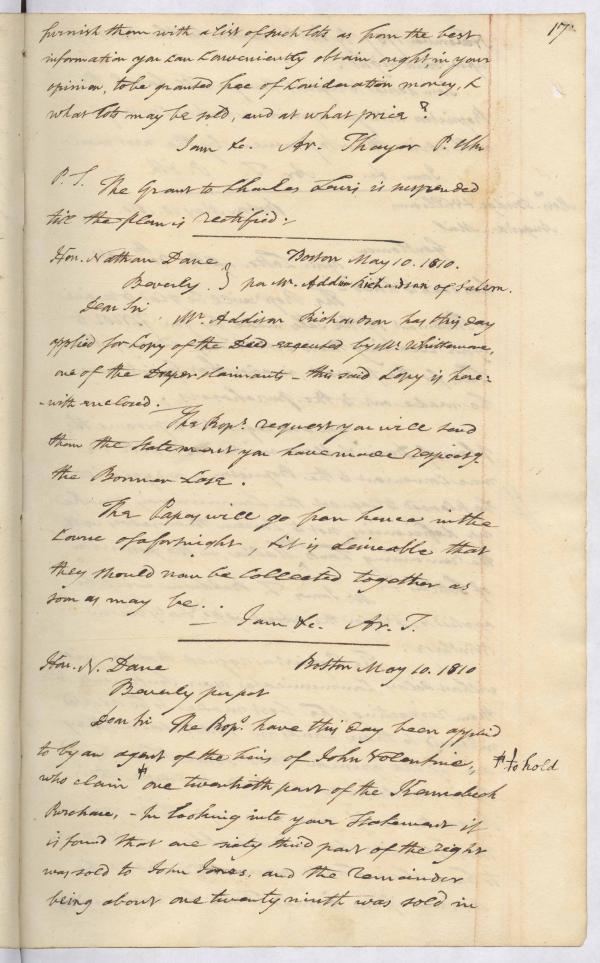 17
furnish them with a list of such lots as from the best
information you can conveniently obtain ought, in your
opinion, to be granted free of Consideration money, &
what lots may be sold, and at what price?
I am &c. Ar. Thayer P. Clk
P.S. The Grant to Charles Lewis is suspended
till the plan is rectified.
Hon. Nathan Dane Boston May 10. 1810.
Beverly. } pr Mr. Addison Richardson of Salem.
Dear Sir
Mr. Addison Richardson has this day
applied for Copy of the Deed executed by Mr. Whittemore,
one of the Draper claimants - this said Copy is here=
=with enclosed.
The Props. request you will send
them the Statement you have made respectg.
the Bonner Case.
The Papers will go from hence in the
Course of a fortnight, & it is desireable that
they should now be Collected together as
soon as may be.
I am &c. Ar. T.
Hon. N. Dane Boston May 10. 1810
Beverly pr post
Dear Sir The Props. have this day been applied
to by an agent of the heirs of John Volentine,
who claim ‡ one twentieth part of the Kennebeck ‡ to hold
Purchase, - In looking into your Statement it
is found that one sixty third part of the right
was sold to John Jones, and the remainder
being about one twenty ninth was sold in